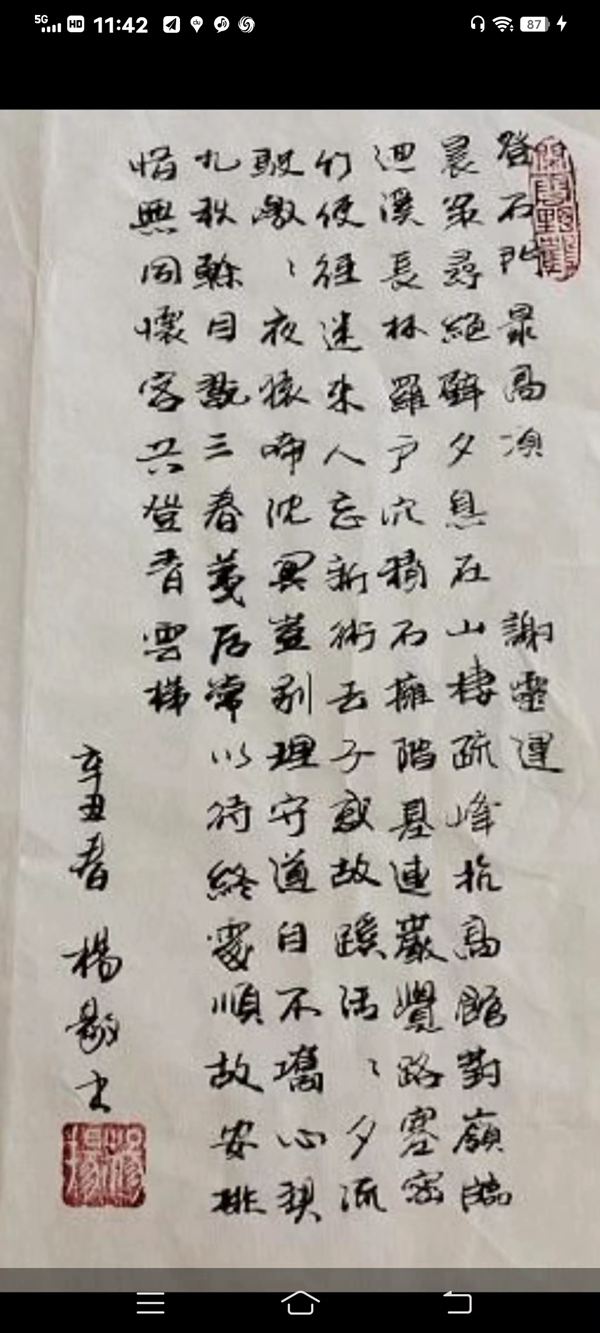 5G HD 11:42 87
登石門最高頂 謝靈運
晨策尋絕壁夕息在山棲疏峰抗高館對嶺臨
迴溪長林羅戶穴積石擁階基連巖覺路塞密
竹使徑迷來人忘新術去子惑故蹊活〻夕流
駛噭〻夜猿啼沈冥豈別理守道自不攜心契
九秋榦目翫三春荑居常以待終處順故安排
惜無同懷客共登青雲梯
辛丑春 楊 书